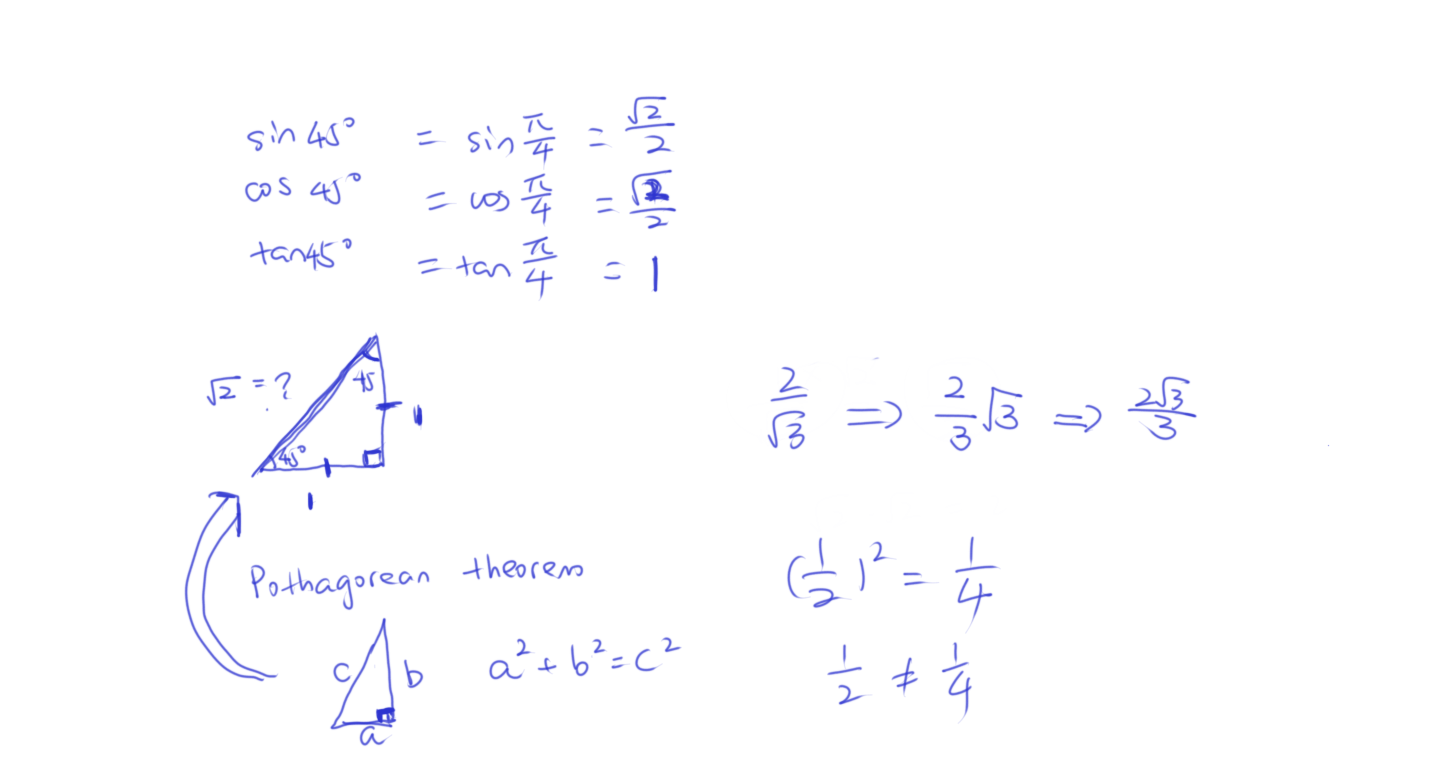 sin 45° = sin π/4 = √2/2
cos 45° = cos π/4 = √2/2
tan 45° = tan π/4 = 1
√2 = ?
45
1
45°
1
2/√3 ⇒ 2/3 √3 ⇒ 2√3/3
Pothagorean theorem
c b a
a² + b² = c²
(1/2)² = 1/4
1/2 ≠ 1/4